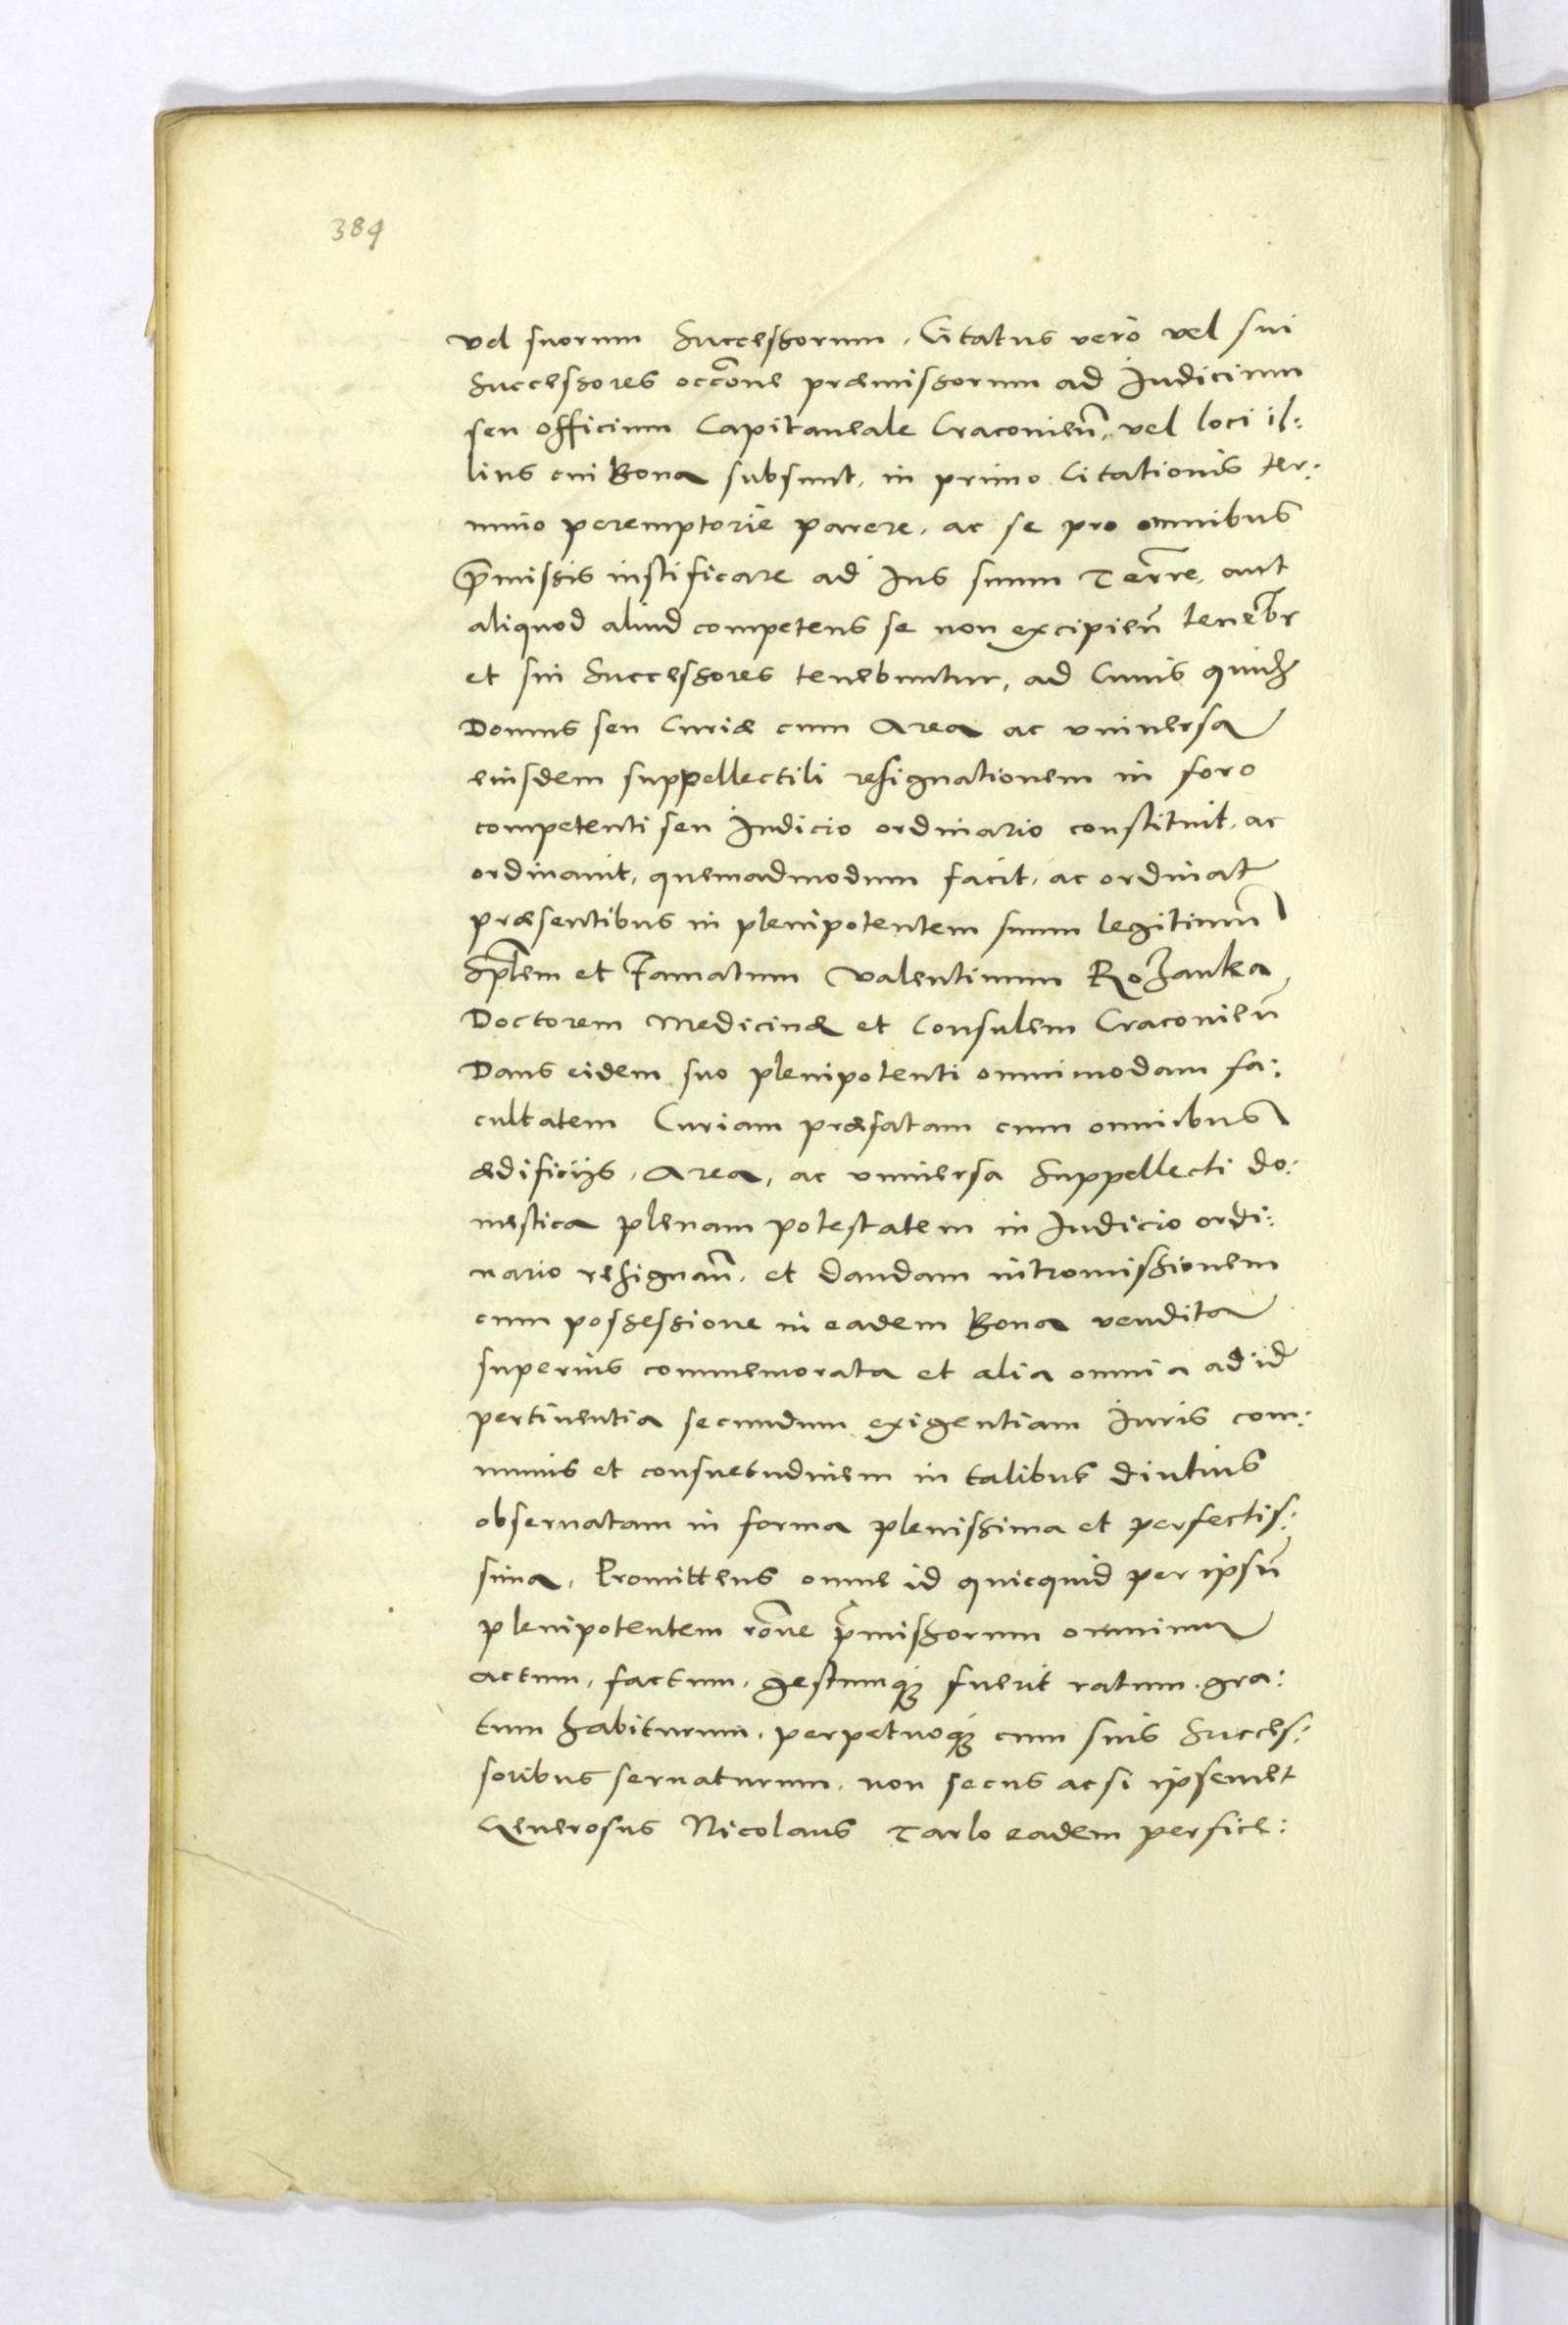 384
vel suorum Successorum, Citatus vero vel sui
Successores occōne præmissorum ad Iudicium
seu officium Capitaneale Cracovien̄, vel loci il:
lius cui Bona subsunt, in primo Citationis ter:
mino peremptorie parere, ac se pro omnibus
p̄missis iustificare ad Ius suum Terrē, aut
aliquod aliud competens se non excipien̄ teneb̄r
et sui Successores tenebuntur, ad Cuius quid
Domus seu Curiæ cum Area ac universa
eiusdem suppellectili resignationem in foro
competenti seu Iudicio ordinario constituit, ac
ordinavit, quemadmodum facit, ac ordinat
præsentibus in plenipotentem suum legitimū
Sp̄lem et Famatum Valentinum Rozanka
Doctorem Medicinæ et Consulem Cracovien̄
Dans eidem suo plenipotenti omnimodam fa:
cultatem Curiam præfatam cum omnibus
ædificijs, Area, ac universa Suppellecti do:
mestica plenam potestatem in Iudicio ordi:
nario resignan̄, et dandam intromissionem
cum possessione in eadem Bona vendita
superius commemorata et alia omnia ad id
pertinentia secundum exigentiam Iuris com:
munis et consuetudinem in talibus diutius
observatam in forma plenissima et perfectis:
sima, Promittens omne id quicquid per ipsū
plenipotentem rōne p̄missorum omnium
actum, factum, gestumq́ꝫ fuerit ratum, gra:
tum habiturum, perpetuoq́ꝫ cum suis Succes:
soribus servaturum, non secus ac si ipsemet
Generosus Nicolaus Tarlo eadem perfice: